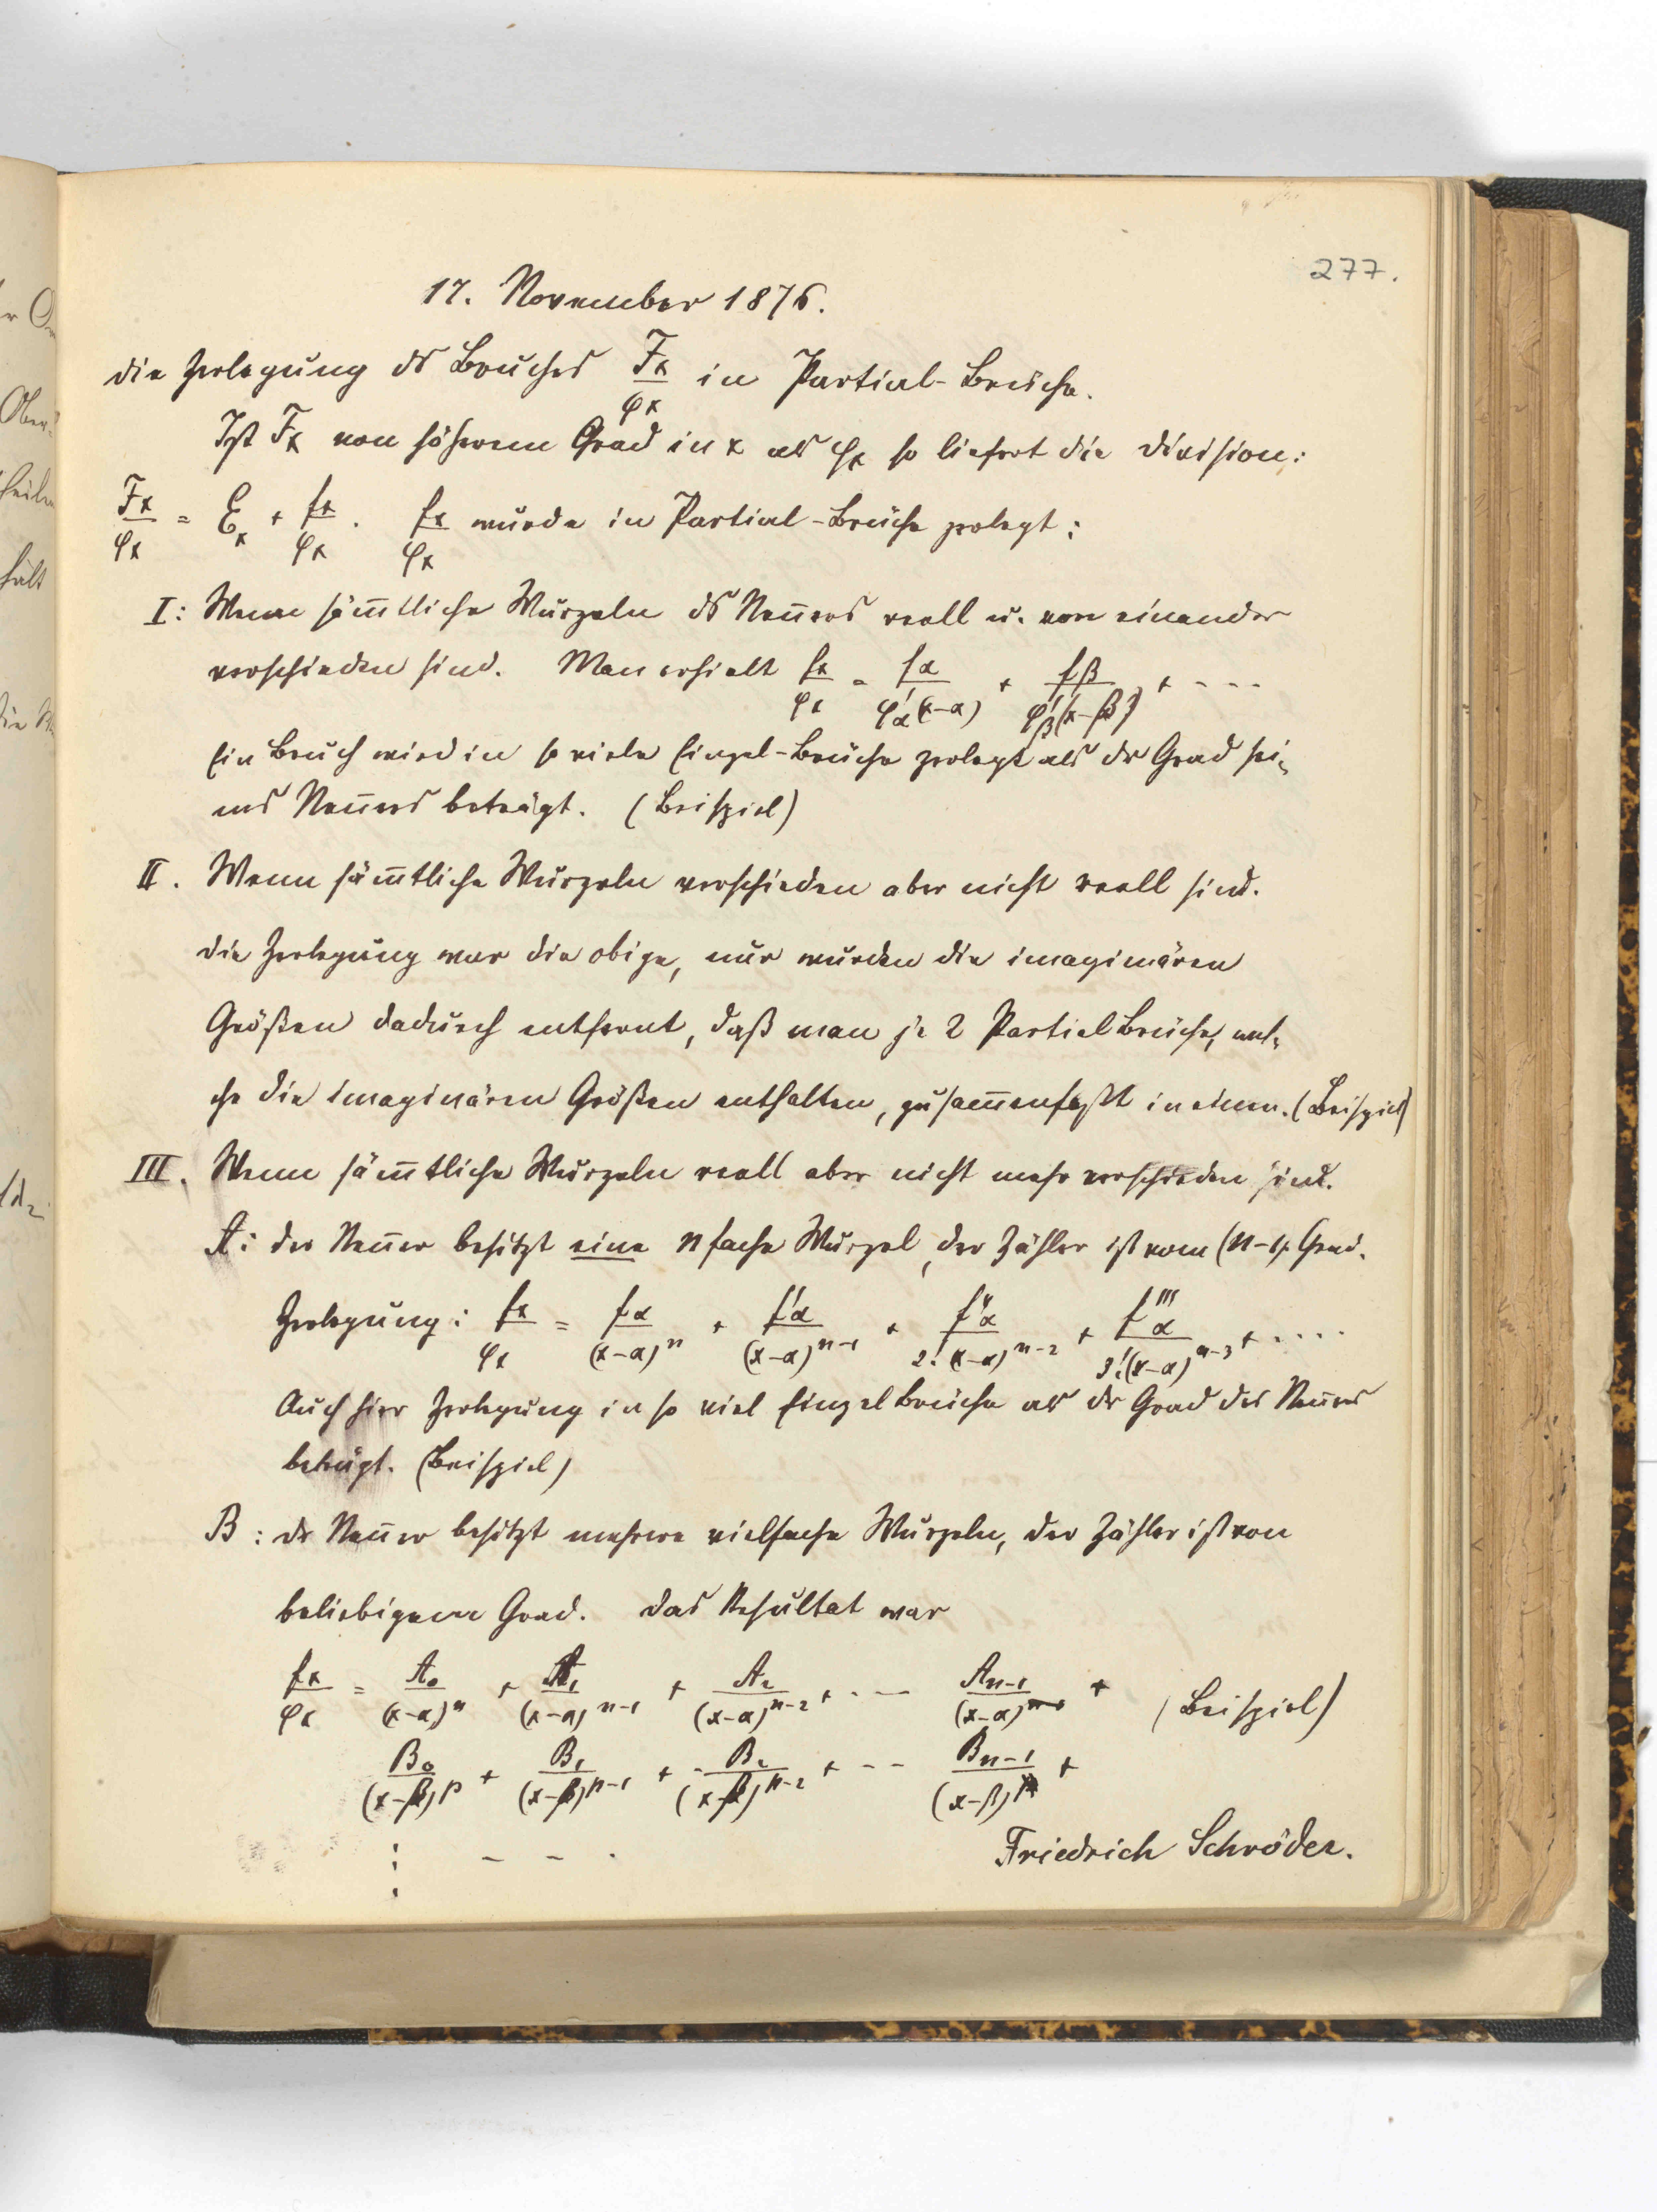 277.
17. November 1876.
Die Zerlegung ds Bruches Fx/φx in Partial-Brüche.
Ist Fx von höherem Grad in x als φx so liefert die Division:
Fx/φx = Ex + fx/φx . fx/φx wurde in Partial-Brüche zerlegt:
I: Wenn säm̅tliche Wurzeln ds Nen̅ers reell u. von einander
verschieden sind. Man erhielt fx/φx = fα/φ'α(x-α) + fβ/φ'β(x-β) + ----
Ein Bruch wird in so viele Einzel-Brüche zerlegt als dr Grad sei-
nes Nen̅ers beträgt. (Beispiel)
II. Wenn säm̅tliche Wurzeln verschieden aber nicht reell sind.
Die Zerlegung war die obige, nur wurden die imaginären
Größen dadurch entfernt, daß man je 2 Partialbrüche, wel-
che die imaginären Größen enthalten, zusam̅enfaßt in einen. (Beispiel)
III. Wenn säm̅tliche Wurzeln reell aber nicht mehr verschieden sind.
A: Der Nen̅er besitzt eine n fache Wurzel, der Zähler ist vom (n-1). Grad.
Zerlegung: fx/φx = fα/(x-α)^n + f'α/(x-α)^n-1 + f''α/2!(x-α)^n-2 + f'''α/3!(x-α)^n-3 + ....
Auch hier Zerlegung in so viel Einzelbrüche als dr Grad des Nen̅ers
beträgt. (Beispiel)
B: dr Nen̅er besitzt mehrere vielfache Wurzeln, der Zähler ist von
beliebigem Grad. Das Resultat war
fx/φx = A0/(x-α)^n + A1/(x-α)^n-1 + A2/(x-α)^n-2 + --- An-1/(x-α) + (Beispiel)
B0/(x-β)^p + B1/(x-β)^p-1 + B2/(x-β)^p-2 + --- Bn-1/(x-β) +
Friedrich Schröder.